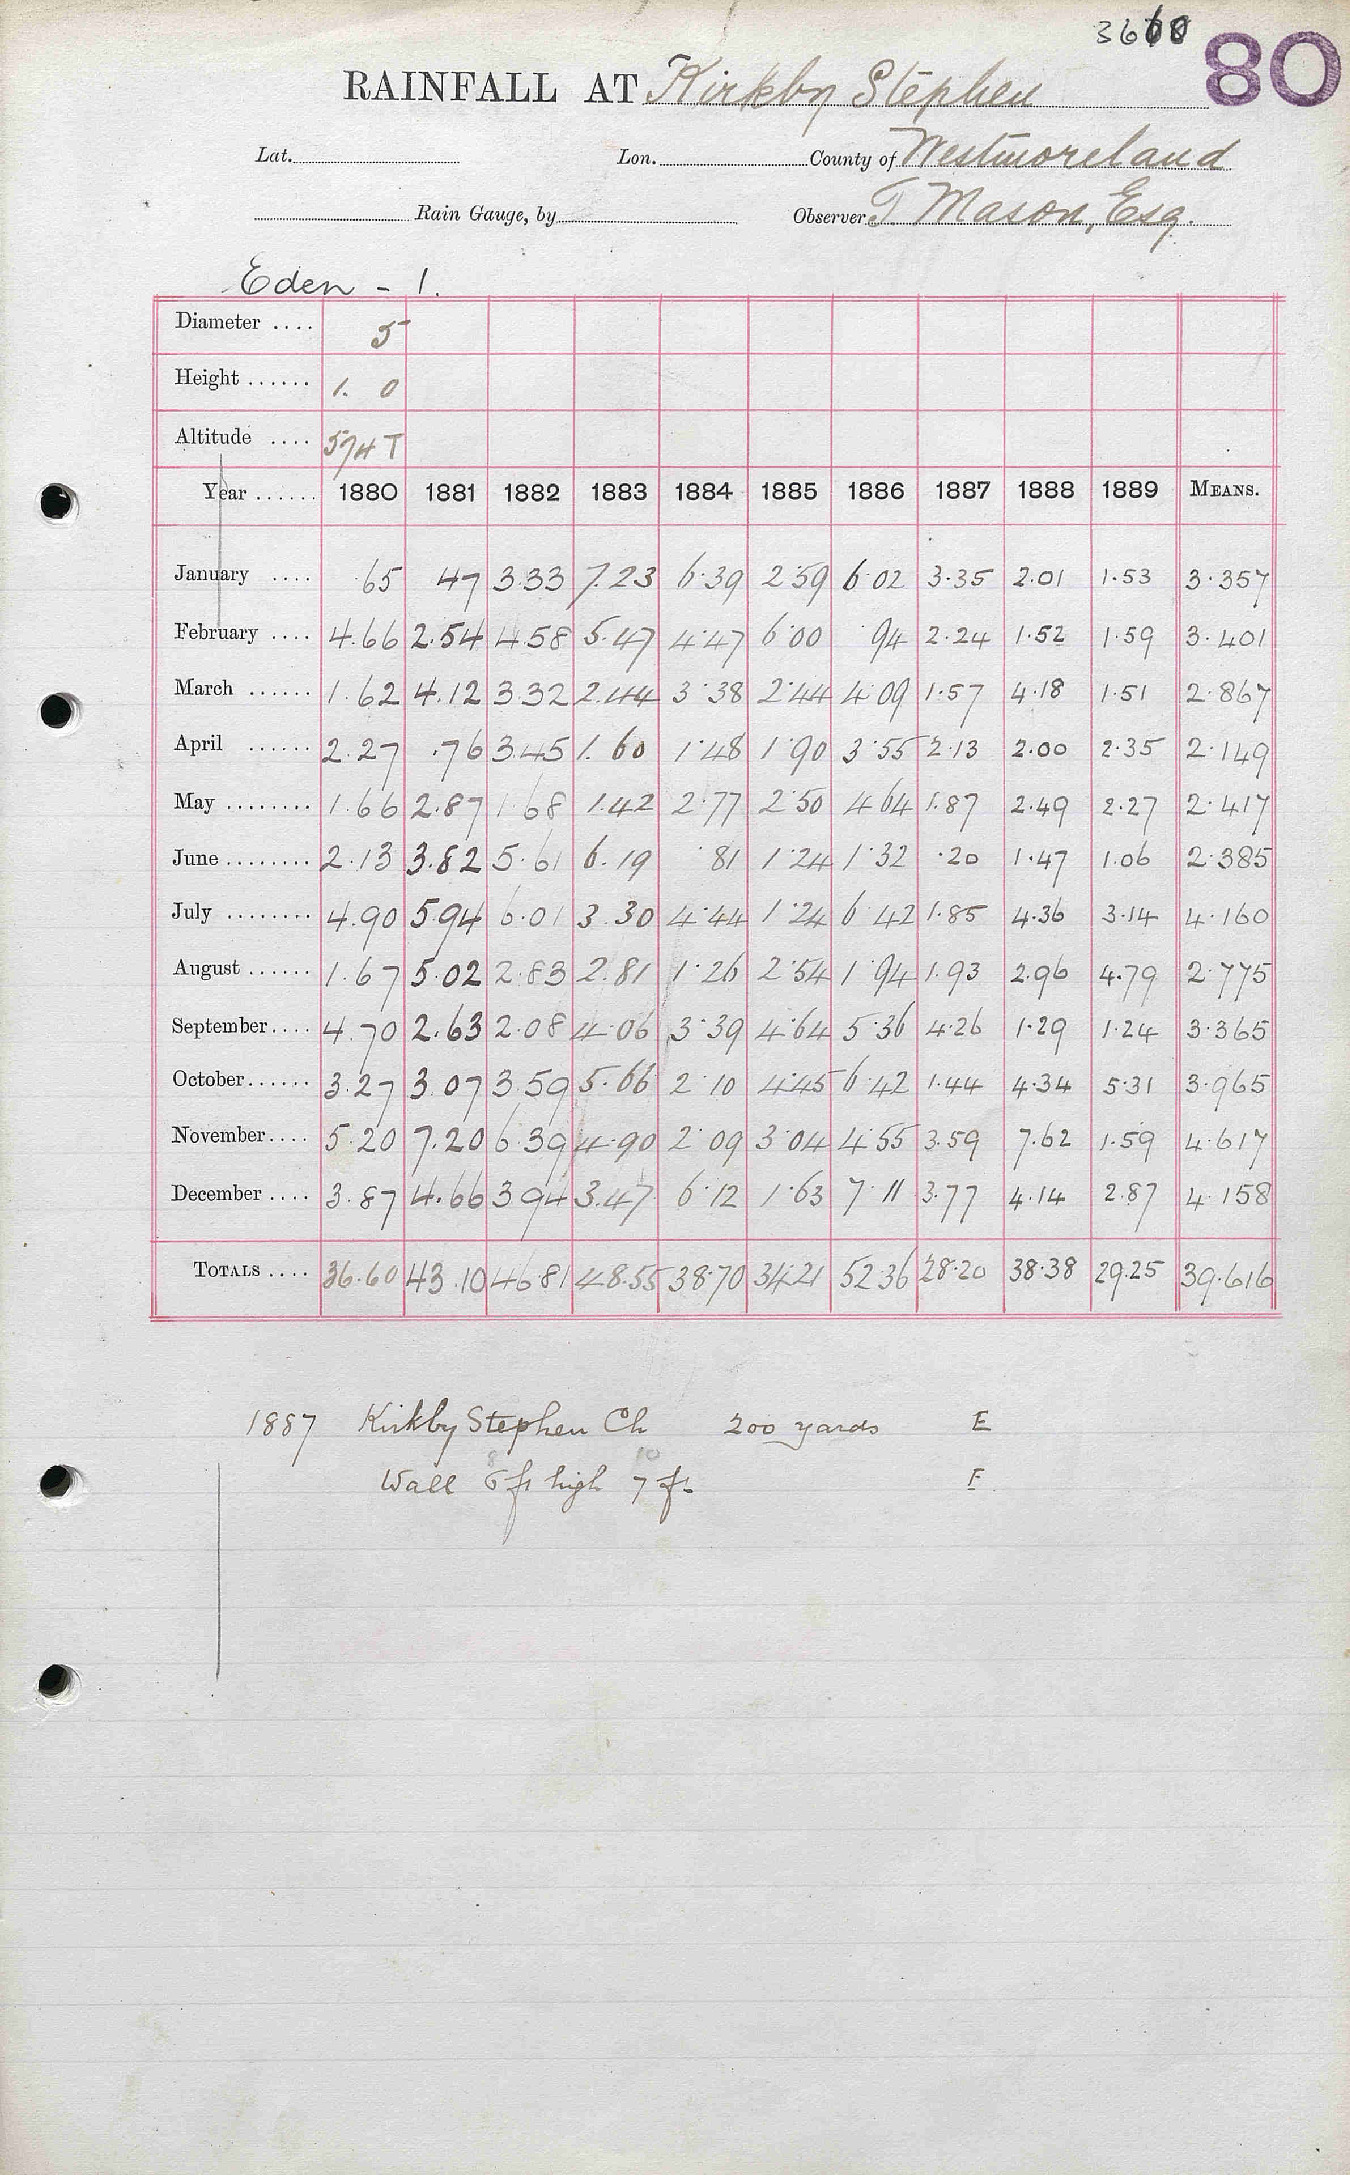 3668 80
RAINFALL AT Kirkby Stephen
Lat. Lon. County of Westmoreland
Rain Gauge, by Observer T Mason, Esq.
Eden - 1.
Diameter .... 5
Height ...... 1. 0
Altitude .... 574 T
Year ...... 1880 1881 1882 1883 1884 1885 1886 1887 1888 1889 MEANS.
January .... .65 47 3.33 7.23 6.39 2.59 6.02 3.35 2.01 1.53 3.357
February .... 4.66 2.54 4.58 5.47 4.47 6.00 94 2.24 1.52 1.59 3.401
March ...... 1.62 4.12 3.32 2.44 3.38 2.44 4.09 1.57 4.18 1.51 2.867
April ...... 2.27 .76 3.45 1.60 1.48 1.90 3.55 2.13 2.00 2.35 2.149
May ........ 1.66 2.87 1.68 1.42 2.77 2.50 4.64 1.87 2.49 2.27 2.417
June ........ 2.13 3.82 5.61 6.19 .81 1.24 1.32 .20 1.47 1.06 2.385
July ........ 4.90 5.94 6.01 3.30 4.44 1.24 6.42 1.85 4.36 3.14 4.160
August ...... 1.67 5.02 2.83 2.81 1.26 2.54 1.94 1.93 2.96 4.79 2.775
September.... 4.70 2.63 2.08 4.06 3.39 4.64 5.36 4.26 1.29 1.24 3.365
October...... 3.27 3.07 3.59 5.66 2.10 4.45 6.42 1.44 4.34 5.31 3.965
November.... 5.20 7.20 6.39 4.90 2.09 3.04 4.55 3.59 7.62 1.59 4.617
December .... 3.87 4.66 3.94 3.47 6.12 1.63 7.11 3.77 4.14 2.87 4.158
TOTALS .... 36.60 43.10 46.81 48.55 38.70 34.21 52.36 28.20 38.38 29.25 39.616
1887 Kirkby Stephen Ch 200 yards E
8 10
Wall 6 ft high 7 ft. E